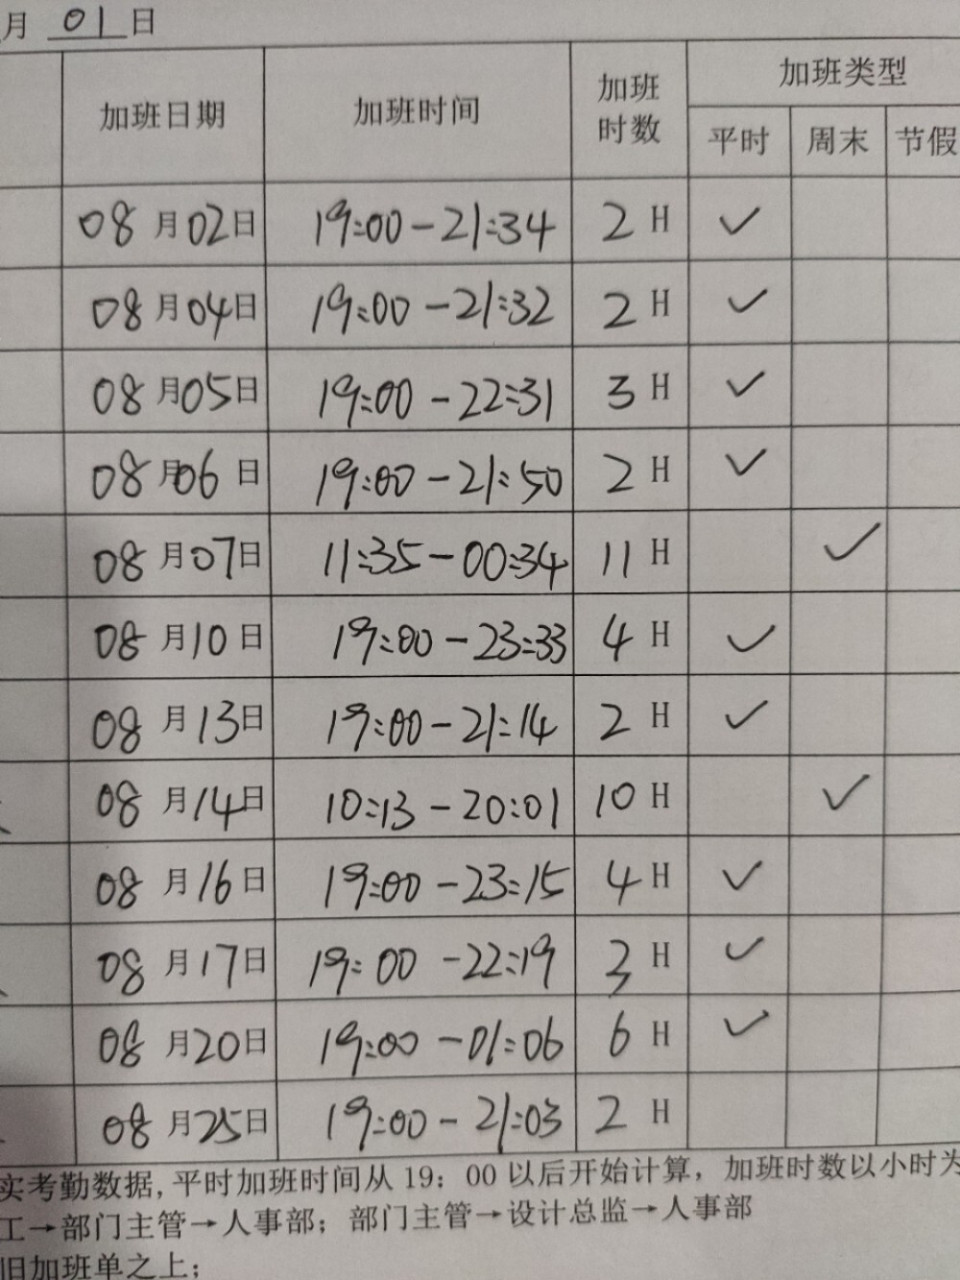 月 01 日
加班日期 加班时间 加班时数 加班类型
平时 周末 节假
08月02日 19:00-21:34 2 H ✓
08月04日 19:00-21:32 2 H ✓
08月05日 19:00-22:31 3 H ✓
08月06日 19:00-21:50 2 H ✓
08月07日 11:35-00:34 11 H ✓
08月10日 19:00-23:33 4 H ✓
08月13日 19:00-21:14 2 H ✓
08月14日 10:13-20:01 10 H ✓
08月16日 19:00-23:15 4 H ✓
08月17日 19:00-22:19 3 H ✓
08月20日 19:00-01:06 6 H ✓
08月25日 19:00-21:03 2 H
实考勤数据,平时加班时间从19:00以后开始计算，加班时数以小时为
工→部门主管→人事部；部门主管→设计总监→人事部
旧加班单之上；